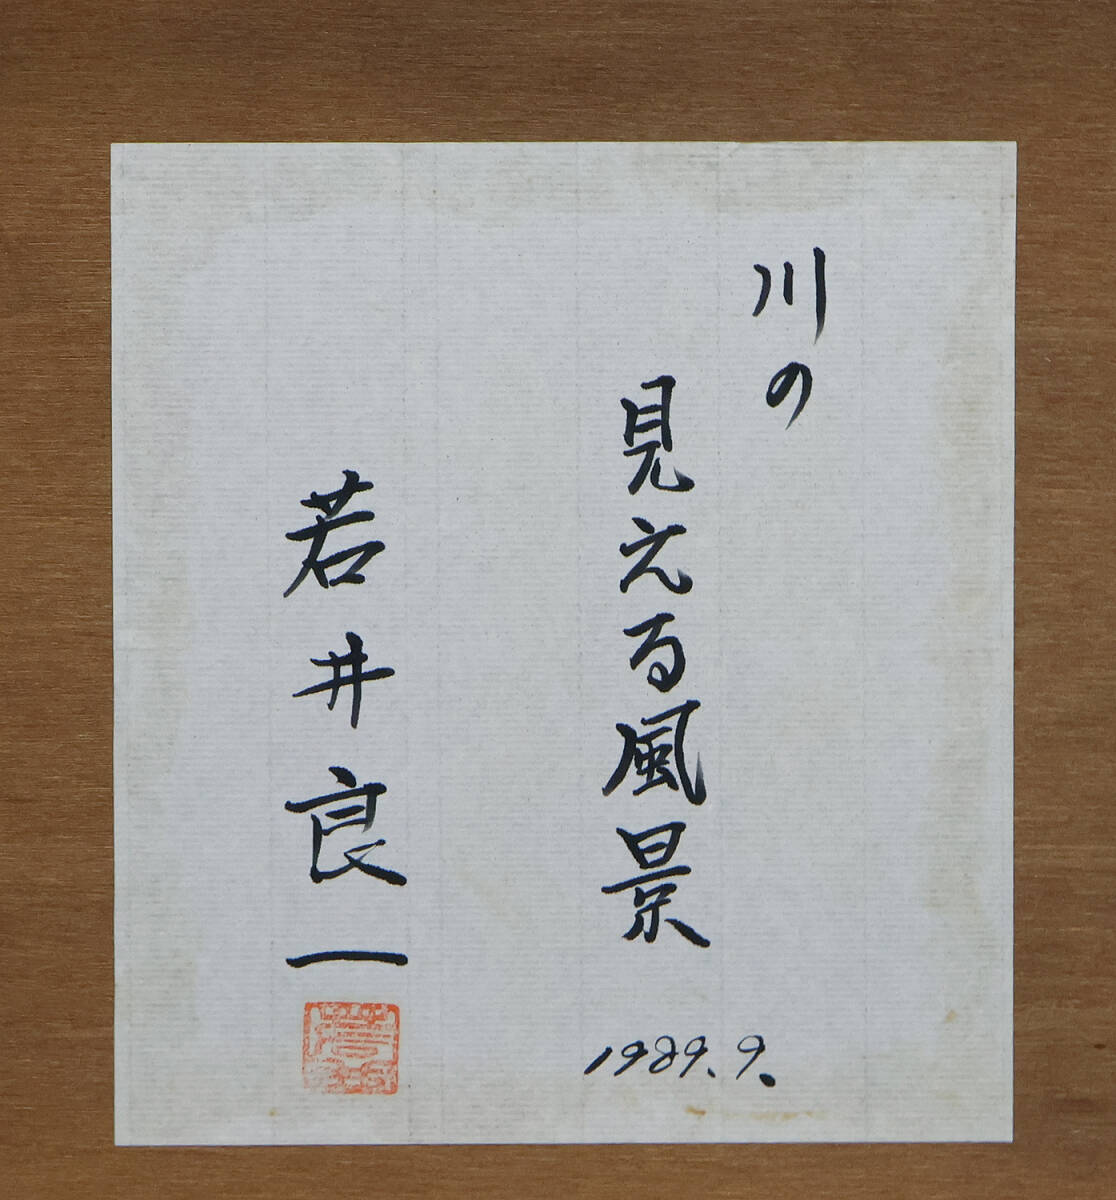 川の
見える風景
1989.9.
若井良一